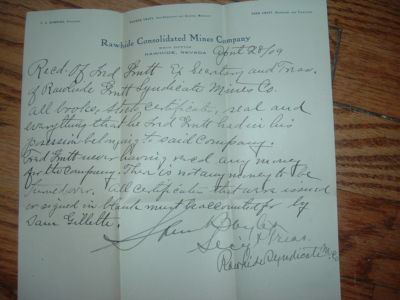 Rawhide Consolidated Mines Company
MAIN OFFICE
RAWHIDE, NEVADA
April 28/09
Recd. Of Fred Pruitt Ex Secretary and Treas.
of Rawhide Syndicate Mines Co.
all books, Stock certificates, seal and
everything that he Fred had in his
possession belonging to said Company.
Fred never having recd any money
for the Company. Ther is not any money to be
turned over. All certificates that are issued
or signed in blank must be accounted for by
Sam Gillette.
Sec'y & Treas.
Rawhide Syndicate M. Co